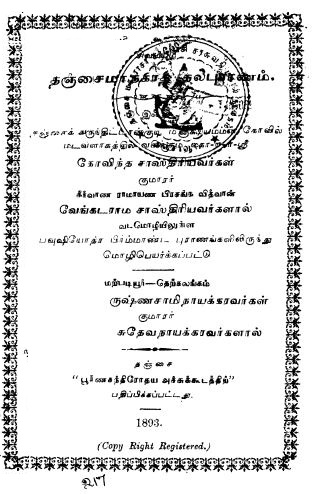 தஞ்சை
கோவில்
கோவிந்த சாஸ்திரியவர்கள்
குமாரர்
கீர்வாண ராமாயண பிரசங்க வித்வான்
வேங்கடராம சாஸ்திரியவர்களால்
வடமொழியிலுள்ள
பவுஷியோத்ர பிர்மாண்ட புராணங்களிலிருந்து
மொழிபெயர்க்கப்பட்டு
மறிபடியூர்—தெற்கலங்கம்
ருஷ்ணசாமிநாயக்கரவர்கள்
குமாரர்
சுதேவநாயக்கரவர்களால்
தஞ்சை
"பூர்ணசந்திரோதய அச்சுக்கூடத்திற்"
பதிப்பிக்கப்பட்டது.
1893.
(Copy Right Registered.)